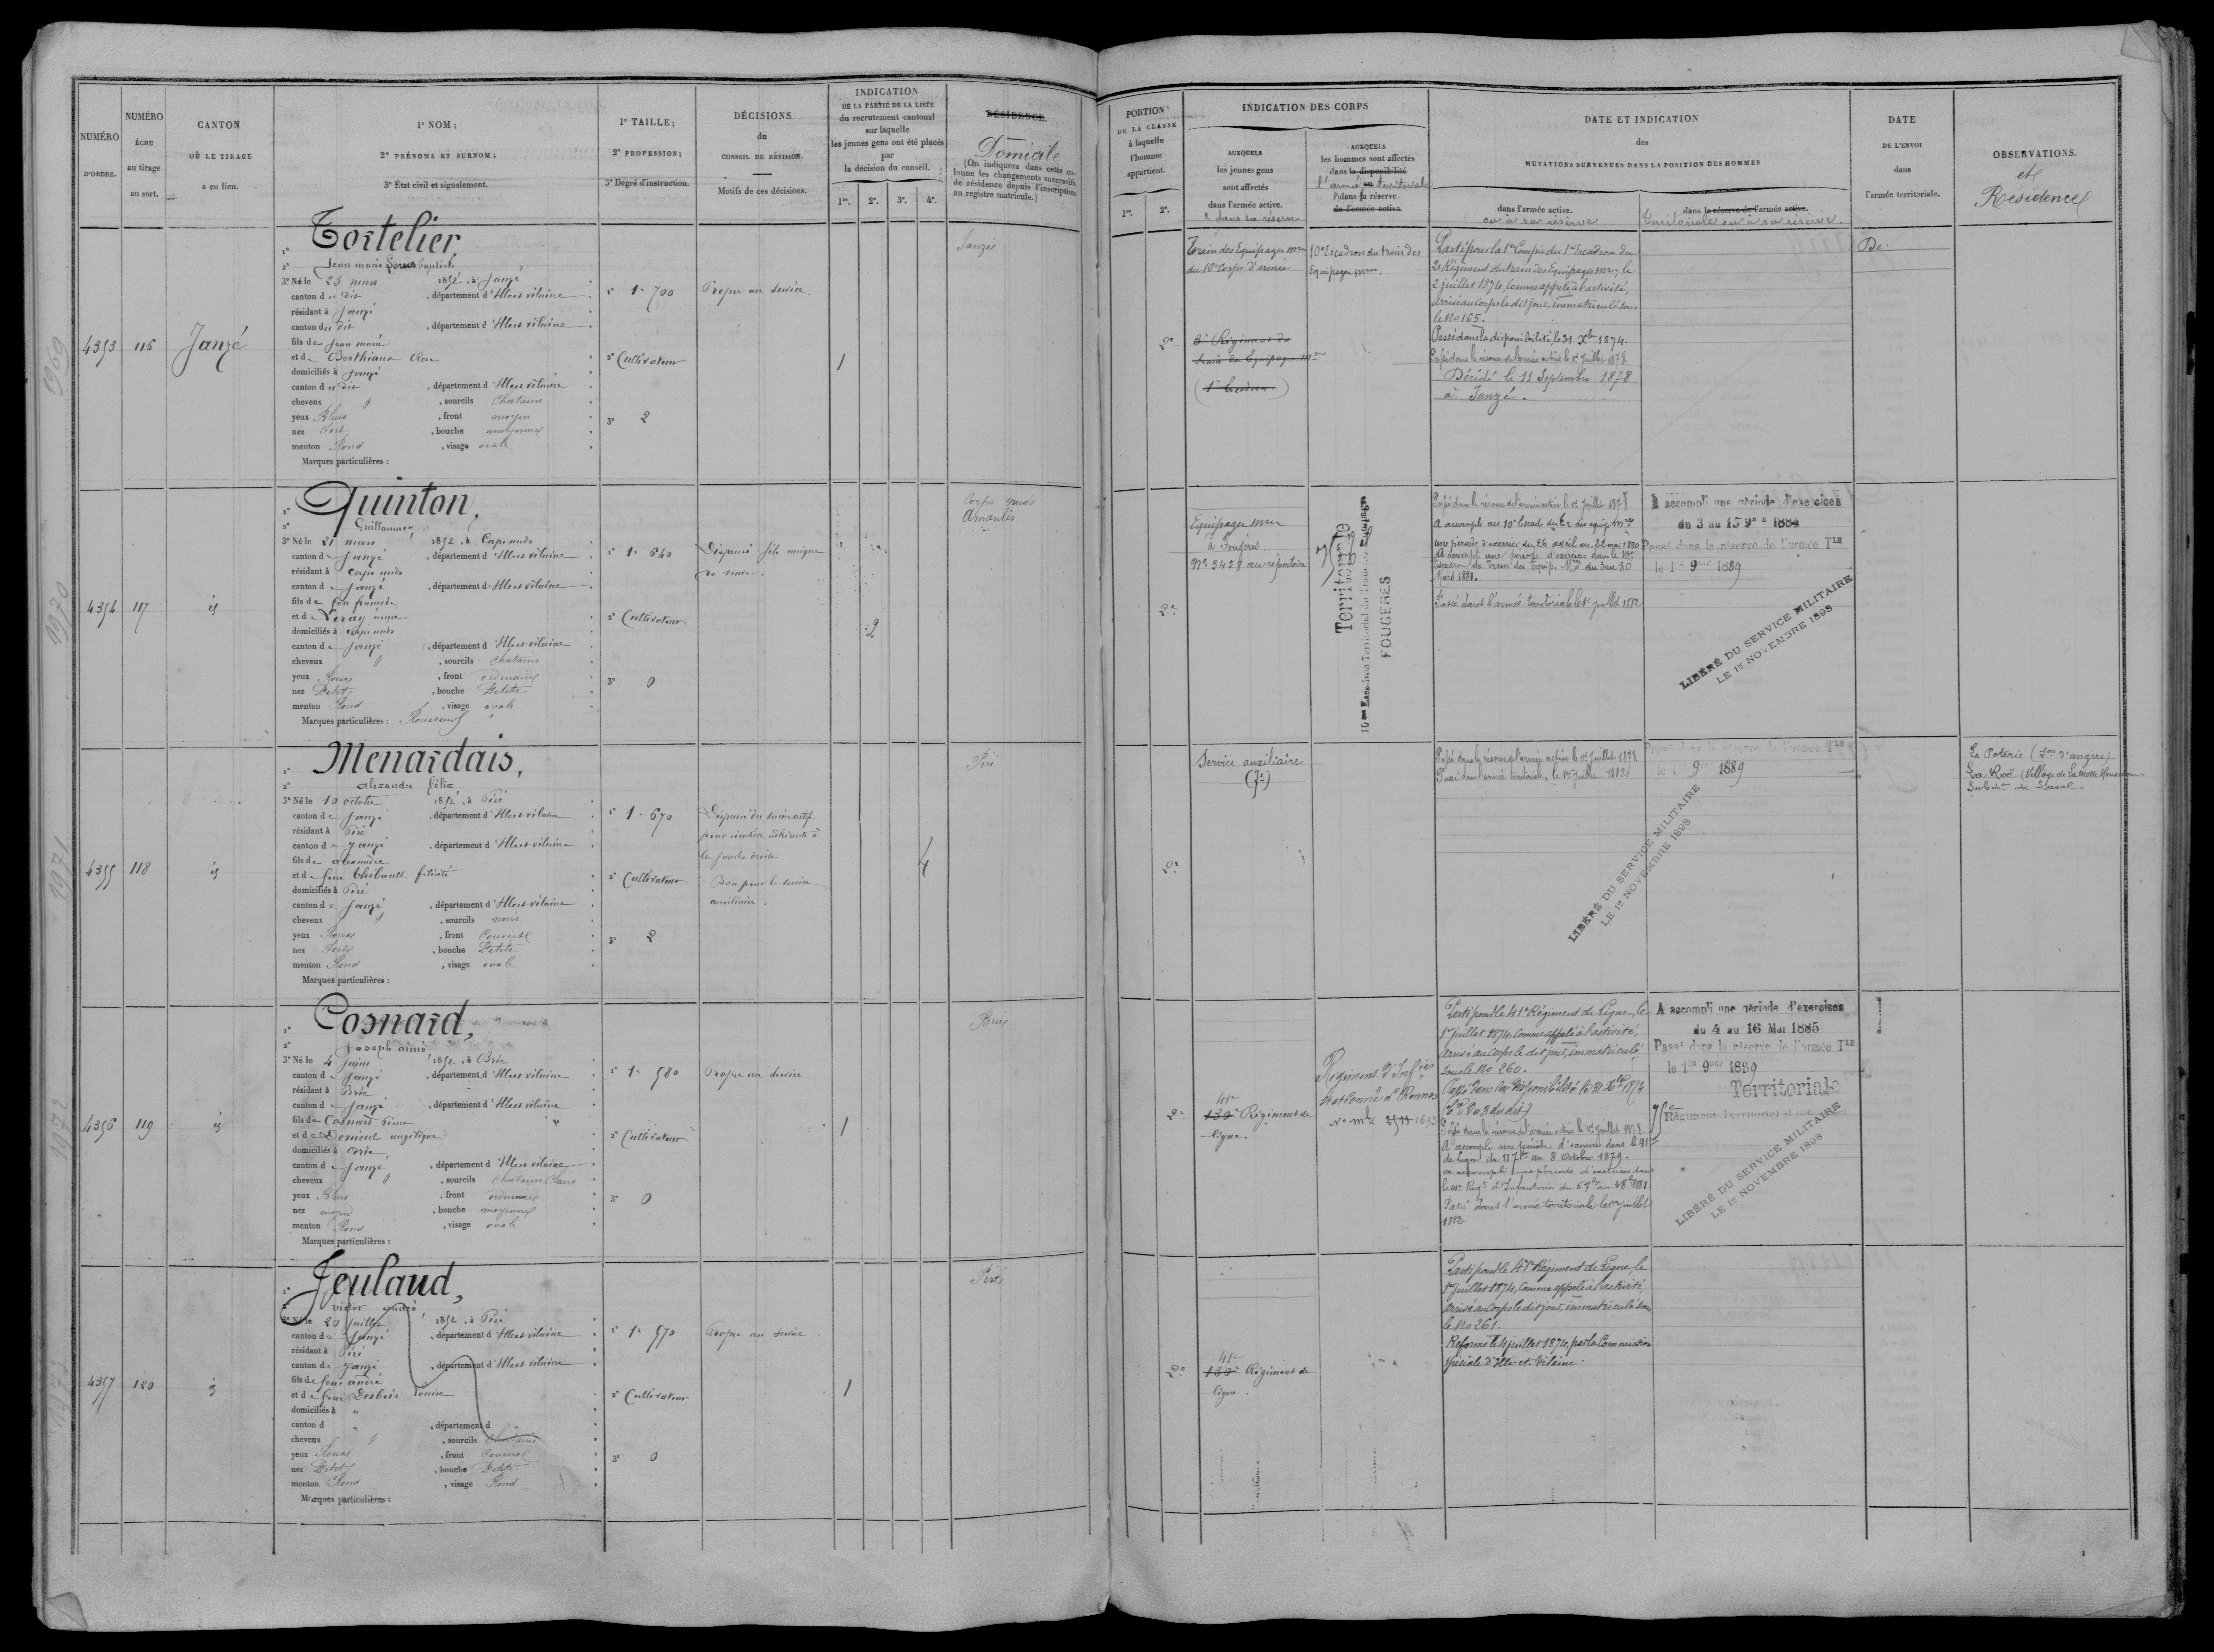 NUMÉRO
D'ORDRE.
NUMÉRO
ÉCHU
au tirage
au sort.
CANTON
OÙ LE TIRAGE
a eu lieu.
1° NOM;
2° PRÉNOMS ET SURNOM;
3° État civil et signalement.
1° TAILLE;
2° PROFESSION;
3° Degré d'instruction.
DÉCISIONS
du
CONSEIL DE RÉVISION.
Motifs de ces décisions.
INDICATION
DE LA PARTIE DE LA LISTE
du recrutement cantonal
sur laquelle
les jeunes gens ont été placés
par
la décision du conseil.
1re. 2e. 3e. 4e.
RÉSIDENCE.
Domicile
(On indiquera dans cette co-
lonne les changements successifs
de résidence depuis l'inscription
au registre matricule.)
PORTION
DE LA CLASSE
à laquelle
l'homme
appartient.
1re. 2e.
INDICATION DES CORPS
AUXQUELS
les jeunes gens
sont affectés
dans l'armée active.
dans sa réserve
AUXQUELS
les hommes sont affectés
dans la disponibilité
l'armée ou territoriale
dans sa réserve
de l'armée active.
DATE ET INDICATION
des
MUTATIONS SURVENUES DANS LA POSITION DES HOMMES
dans l'armée active.
ou à sa réserve
dans la réserve de l'armée active.
territoriale ou à sa réserve.
DATE
DE L'ENVOI
dans
l'armée territoriale.
OBSERVATIONS.
et
Résidence
4353
116
Janzé
1° Tortelier
2° Jean marie Louis baptiste
3° Né le 23 mars 1852, à Janzé
canton du dit, département d'Ille et vilaine
résidant à Janzé
canton du dit, département d'Ille et vilaine
fils de Jean marie
et de Berthiaux
domiciliés à Janzé
canton du dit, département d'Ille et vilaine
cheveux &, sourcils Chatains
yeux Bleus, front moyen
nez Fort, bouche moyenne
menton Rond, visage ovale
Marques particulières :
1° 1m 700
2° Cultivateur
3° 2
Propre au Service.
1
Janzé
2e
Train des Equipages mres
du 10e Corps d'armée
3e Régiment du
train des Equipages mres
(1er Escadron)
10e Escadron du train des
Equipages mres.
Parti pour la 1re Compie du 1er Escadron du
2e Régiment du train des Equipages mres, le
2 juillet 1874, Comme appelé à l'activité,
arrivé au corps le dit jour, immatriculé sous
le No 165.
Passé dans la disponibilité, le 31 Xbre 1874.
Passé dans la réserve de l'armée active le 1er Juillet 1878.
Décédé le 11 Septembre 1878
à Janzé.
De
4354
117
id
1° Quinton,
2° Guillaume
3° Né le 21 mars 1852, à Corps nuds
canton de Janzé, département d'Ille et vilaine
résidant à Corps nuds
canton de Janzé, département d'Ille et vilaine
fils de feu
et de Veray anne
domiciliés à Corps nuds
canton de Janzé, département d'Ille et vilaine
cheveux &, sourcils Chatains
yeux Roux, front ordinaire
nez Petit, bouche Petite
menton Rond, visage ovale
Marques particulières : Rousseurs
1° 1m 640
2° Cultivateur
3° 0
Dispensé fils unique
de veuve.
2
Corps nuds
Amanlis
2e
Equipages mres
à Fougères
No 3458 au répertoire
Territoriale
FOUGÈRES
Passé dans la réserve de l'armée active le 1er Juillet 1878
A accompli au 10e Escad. du tr. des equip. mres
une période d'exercice du 26 avril au 22 mai 1880
A accompli une période d'exercices dans le 10e
Escadron du Train des Equip. Mres du 3 au 30
Mars 1881.
Passé dans l'armée territoriale le 1er juillet 1882
A accompli une période d'exercices
du 3 au 15 9bre 1884
Passé dans la réserve de l'armée TLE
le 1er 9bre 1889
LIBÉRÉ DU SERVICE MILITAIRE
LE 1er NOVEMBRE 1898
4355
118
id
1° Menardais,
2° alexandre félix
3° Né le 10 octobre 1852, à Piré
canton de Janzé, département d'Ille et vilaine
résidant à Piré
canton de Janzé, département d'Ille et vilaine
fils de alexandre
et de feue Thébault félicité
domiciliés à Piré
canton de Janzé, département d'Ille et vilaine
cheveux &, sourcils noirs
yeux Roux, front Couvert
nez Fort, bouche Petite
menton Rond, visage ovale
Marques particulières :
1° 1m 670
2° Cultivateur
3° 2
Dispensé du service actif
pour cicatrice adhérente à
la jambe droite
Bon pour le service
auxiliaire.
4
Piré
2e
Service auxiliaire
Passé dans la réserve de l'armée active le 1er Juillet 1878
Passé dans l'armée territoriale, le 1er Juillet 1882.
Passé dans la réserve de l'armée TLE
le 1er 9bre 1889
LIBÉRÉ DU SERVICE MILITAIRE
LE 1er NOVEMBRE 1898
La Poterie (Son d'angers)
La Roë (Village de La motte
Subdon de Laval
4356
119
id
1° Cosnard,
2° Joseph aimé
3° Né le 4 Juin 1852, à Brie
canton de Janzé, département d'Ille et vilaine
résidant à Brie
canton de Janzé, département d'Ille et vilaine
fils de Cosnard
et de Denieul angélique
domiciliés à Brie
canton de Janzé, département d'Ille et vilaine
cheveux &, sourcils Chatains Clairs
yeux Bleus, front ordinaire
nez moyen, bouche moyenne
menton Rond, visage ovale
Marques particulières :
1° 1m 580
2° Cultivateur
3° 0
Propre au Service
1
Brie
2e
41e
130e Régiment de
ligne.
Régiment d'Infrie
stationné à Rennes
Parti pour le 41e Régiment de Ligne, le
1er juillet 1874, Comme appelé à l'activité,
arrivé au corps le dit jour, immatriculé
sous le No 260.
Passé dans la disponibilité le 31 Xbre 1874
Passé dans la réserve de l'armée active le 1er Juillet 1878
A accompli une période d'exercice dans le 41e
de Ligne du 11 7bre au 8 Octobre 1879.
a accompli une période d'exercices dans
Passé dans l'armée territoriale le 1er juillet
1882
A accompli une période d'exercices
du 4 au 16 Mai 1885
Passé dans la réserve de l'armée TLE
le 1er 9bre 1889
Territoriale
75e Régiment Territorial
LIBÉRÉ DU SERVICE MILITAIRE
LE 1er NOVEMBRE 1898
4357
120
id
1° Jeuland,
2° victor andré
3° Né le 20 juillet 1852, à Piré
canton de Janzé, département d'Ille et vilaine
résidant à Piré
canton de Janzé, département d'Ille et vilaine
fils de feu andré
et de feue Desbois
domiciliés à "
canton d ", département d "
cheveux &, sourcils Chatains
yeux Roux, front Couvert
nez Petit, bouche Petite
menton Rond, visage Rond
Marques particulières :
1° 1m 570
2° Cultivateur
3° 0
Propre au Service
1
Piré
2e
41e
130e Régiment de
ligne.
Parti pour le 41e Régiment de Ligne, le
1er juillet 1874, Comme appelé à l'activité,
arrivé au corps le dit jour, immatriculé sous
le No 261.
Réformé le 4 juillet 1874, par la Commission
spéciale d'Ille-et-Vilaine.
1969
1970
1971
1972
1973